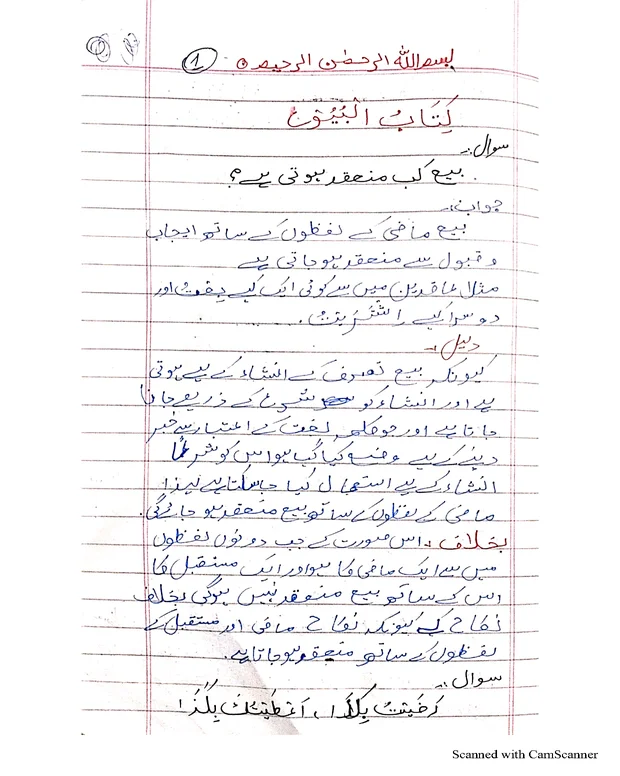 1
بسم الله الرحمٰن الرحیم
کِتَابُ الْبُیُوْعِ
سوال:۔
بیع کب منعقد ہوتی ہے؟
جواب:۔
بیع ماضی کے لفظوں کے ساتھ ایجاب
و قبول سے منعقد ہوجاتی ہے
مثلا عاقدین میں سے کوئی ایک کہے بِعْتُ اور
دوسرا کہے اِشْتَرَیْتُ.
دلیل:۔
کیونکہ بیع تصرف کے انشاء کے لیے ہوتی
ہے اور انشاء کو شرع کے ذریعے جانا
جاتا ہے اور جو کلمہ لغت کے اعتبار سے خبر
دینے کے لیے وضع کیا گیا ہو اس کو شرعًا
انشاء کے لیے استعمال کیا جاسکتا ہے لہذا
ماضی کے لفظوں کے ساتھ بیع منعقد ہو جائے گی.
بخلاف، اس صورت کے جب دونوں لفظوں
میں سے ایک ماضی کا ہو اور ایک مستقبل کا
اس کے ساتھ بیع منعقد نہیں ہوگی بخلاف
نکاح کے کیونکہ نکاح ماضی اور مستقبل کے
لفظوں کے ساتھ منعقد ہوجاتا ہے.
سوال:۔
رَضِیْتُ بِکَذَا، اَعْطَیْتُکَ بِکَذَا
Scanned with CamScanner